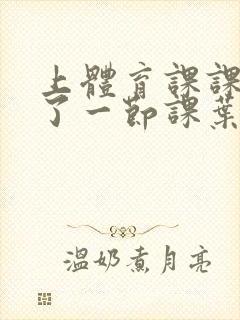 上體育課課
了一節課葉
溫奶煮月亮